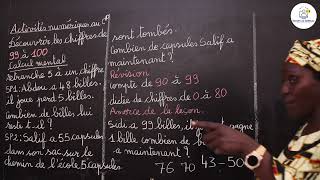 Activités numériques au
Découvrir les chiffres de
99 à 100
Calcul mental
retranche 5 à un chiffre
SP1: Abdou a 48 billes.
il joue perd 5 billes.
Combien de billes lui
reste t-il ?
SP2: Salif a 55 capsules
dans son sac sur le
chemin de l'école 5 capsules
sont tombés.
Combien de capsules Salif a
maintenant ?
Révision
compte de 90 à 99
dictée de chiffres de 0 à 80
Amorce de la leçon
Sidi a 99 billes, il gagne
1 bille combien de
a maintenant ?
76 70 43-50